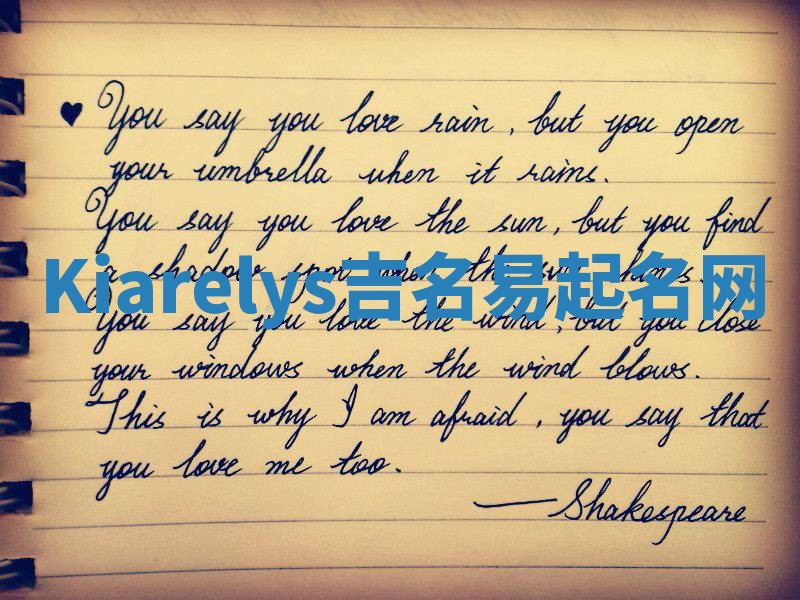 ♥ You say you love rain, but you open
your umbrella when it rains.
You say you love the sun, but you find
a shadow spot when the sun shines.
Kiarelys吉名易起名网
You say you love the wind, but you close
your windows when the wind blows.
This is why I am afraid, you say that
you love me too.
— Shakespeare